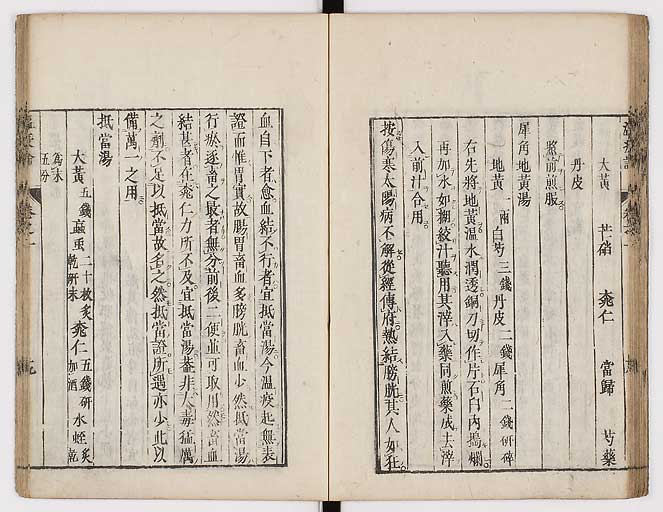 大黃 芒硝 桃仁 當歸 芍藥
丹皮
照前煎服
犀角地黃湯
地黃一兩白芍三錢丹皮二錢犀角二錢研碎
右先將地黃溫水潤透銅刀切作片石臼內搗爛
再加水如糊絞汁聽用其滓入藥同煎藥成去滓
入前汁合用
按傷寒太陽病不解從經傳府熱結膀胱其人如狂
血自下者愈血結不行者宜抵當湯今溫疫起無表
證而惟胃實故腸胃畜血多膀胱畜血少然抵當湯
行瘀逐畜之最者無分前後二便並可取用然畜血
結甚者在桃仁力所不及宜抵當湯蓋非大毒猛厲
之劑不足以抵當故名之然抵當證所遇亦少此以
備萬一之用
抵當湯
大黃五錢䖟蟲二十枚炙乾研末桃仁五錢研加酒水蛭炙乾
為末五分